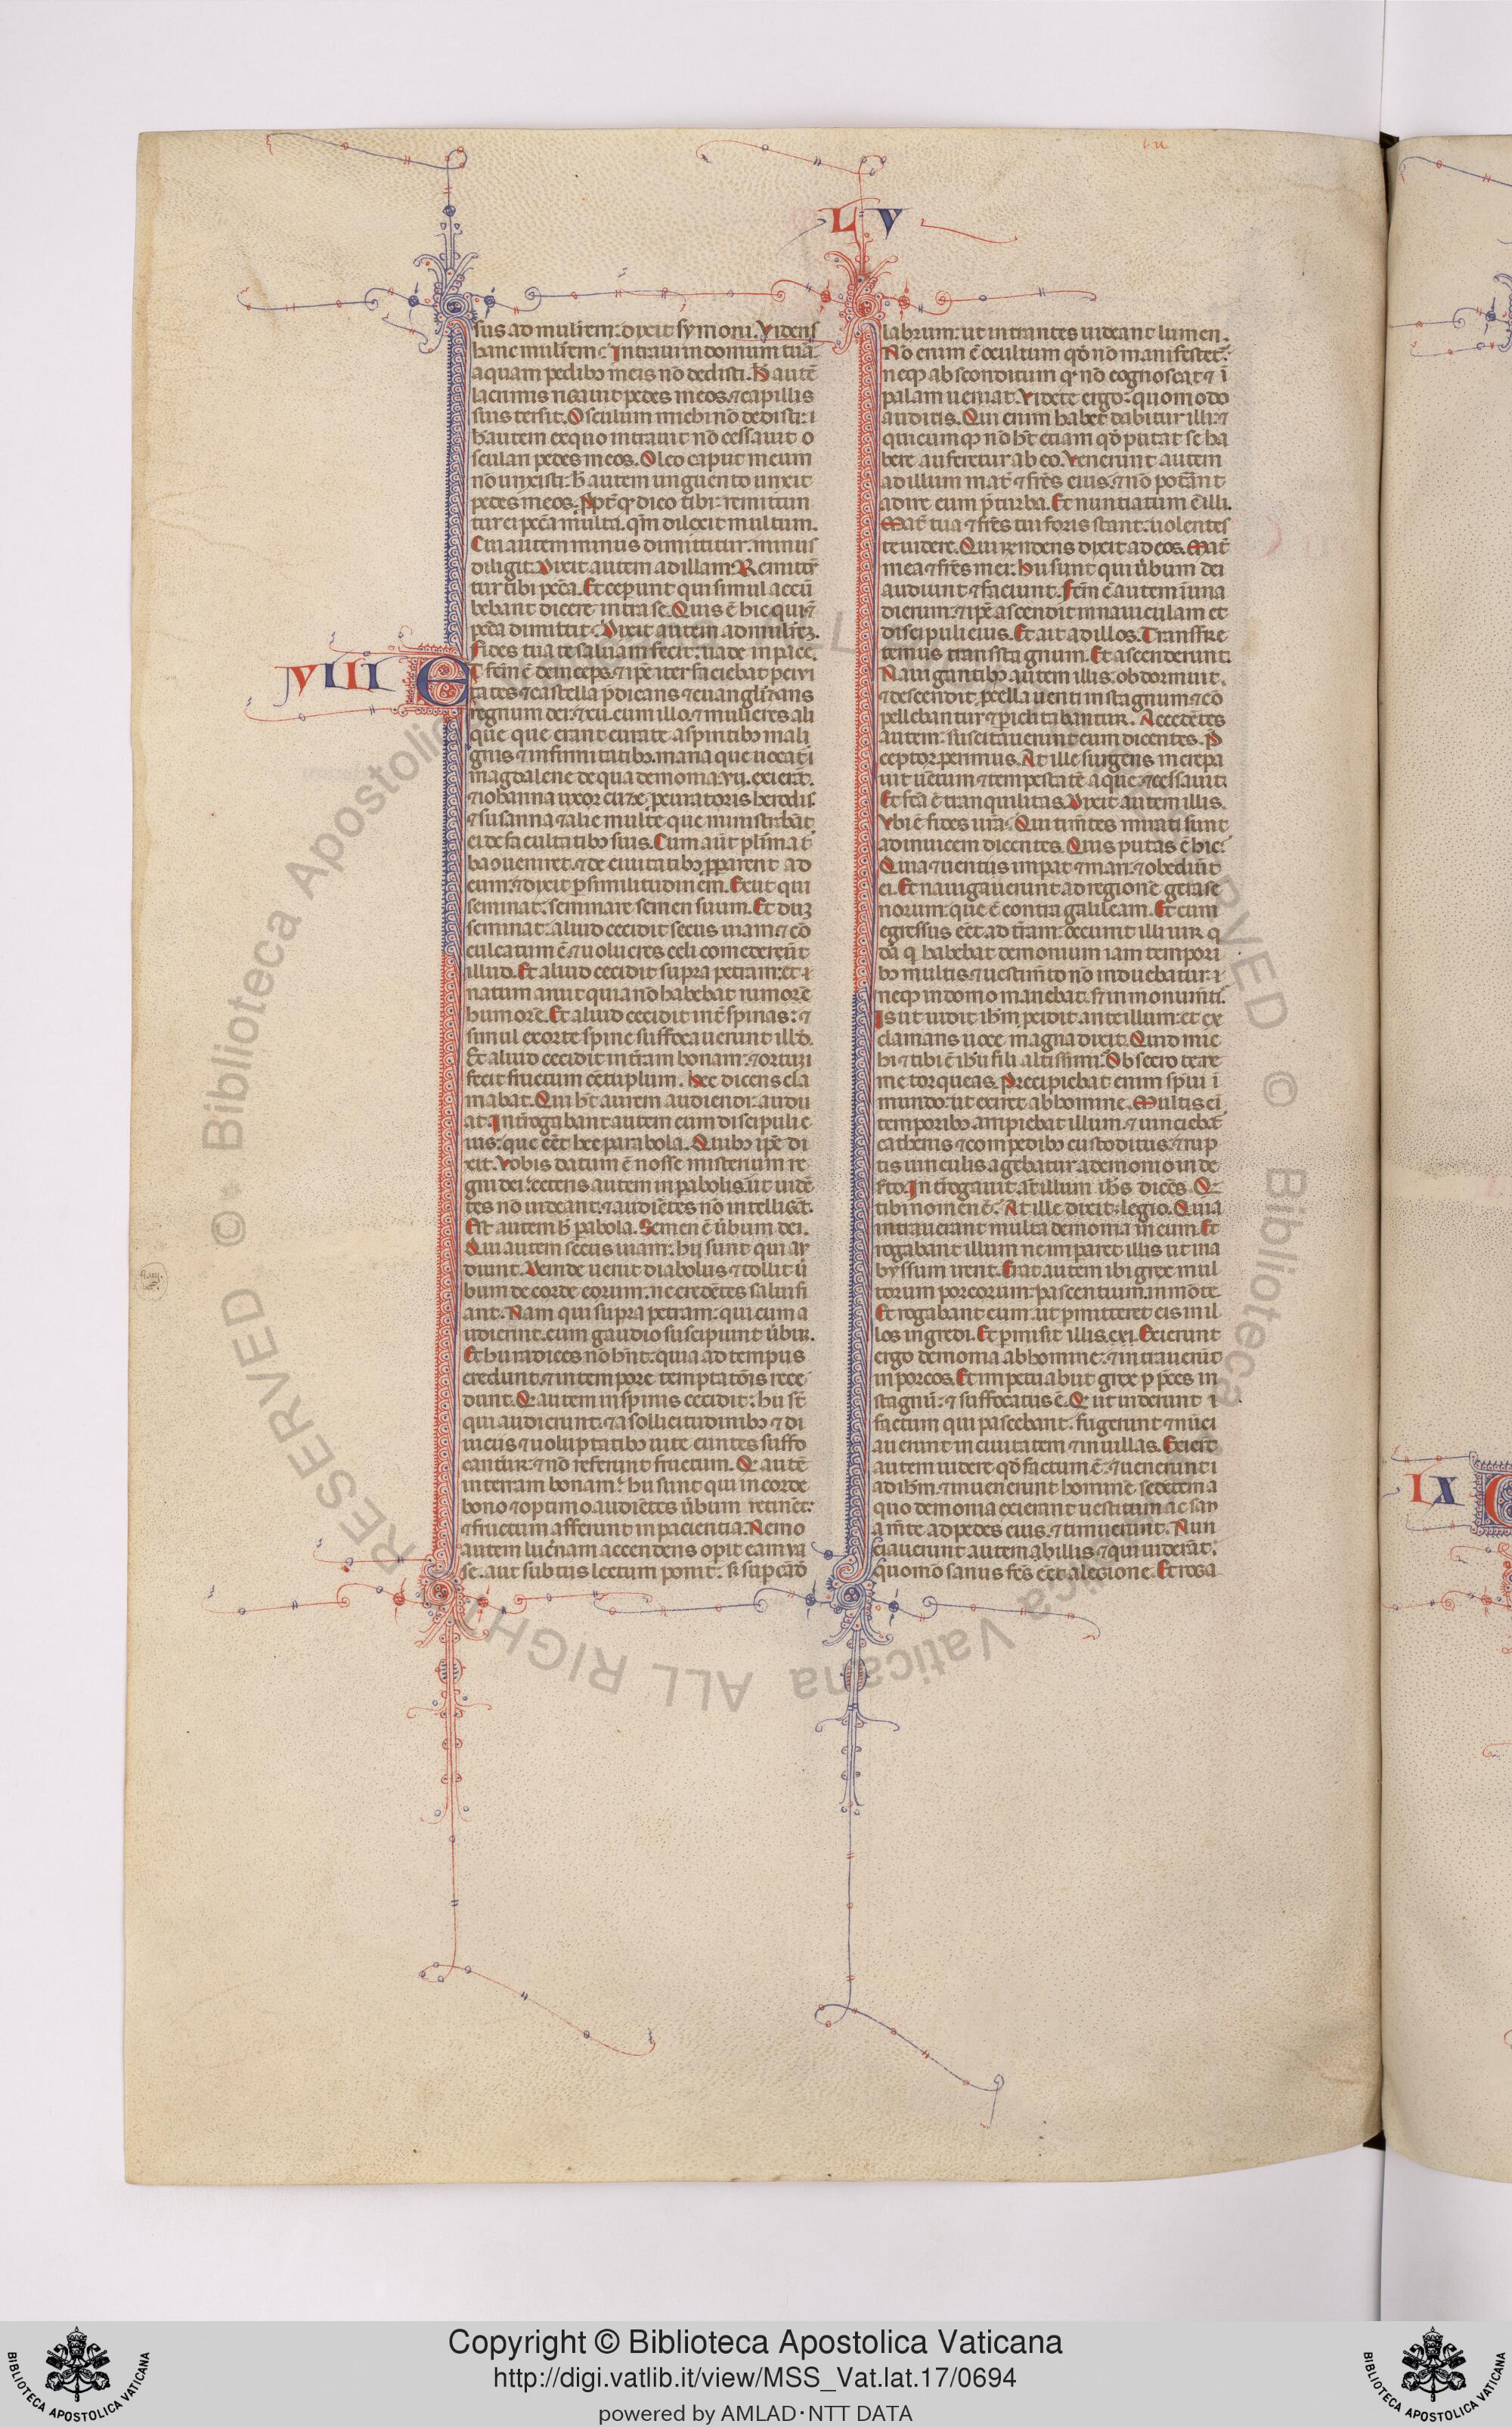 L V
sus ad mulierem: dixit symoni. Videns
hanc mulierem: Intraui in domum tuā
aquam pedibꝫ meis nō dedisti. h̄ autē
lacrimis rigauit pedes meos. ⁊ capillis
suis tersit. Osculum michi nō dedisti: i
h̄ autem ex quo intrauit nō cessauit o
sculari pedes meos. Oleo caput meum
nō unxisti: h̄ autem unguento unxit
pedes meos. Ꝓpt̄ qđ dico tibi: remittun
tur ei pcc̄a multa. qm̄ dilexit multum.
Cui autem minus dimittitur. minus
diligit. Dixit autem ad illam: Remittū
tur tibi pcc̄a. Et ceꝑunt qui simul accū
bebant dicere intra se. Quis ē hic qui ⁊
pcc̄a dimittit. Dixit autem ad mulierē.
Fides tua te saluam fecit: uade in pace.
VIII
ET fcm̄ ē deinceps. ⁊ ip̄e iter faciebat per ciui
tates ⁊ castella p̄dicans ⁊ euangliz̄ans
regnum dei: ⁊ xii. cum illo. ⁊ mulieres ali
que que erant curate a spiritibꝫ mali
gnis ⁊ infirmitatibꝫ. maria que uocat̄
magdalene de qua demonia .vii. exierāt.
⁊ iohanna uxor cuze ꝓcuratoris herodis.
⁊ susanna ⁊ alie multe que ministrabāt
ei de facultatibꝫ suis. Cum aūt plurima t
ba ueniret. ⁊ de ciuitatibꝫ ꝓparent ad
eum: ⁊ dixit p̄ similitudinem. Exiit qui
seminat: seminare semen suum. Et dum
seminat: aliud cecidit secus uiam ⁊ cō
culcatum ē ⁊ uolucres celi comederūt
illud. Et aliud cecidit supra petram: et
natum aruit quia nō habebat
humorē. Et aliud cecidit int̄ spinas: ⁊
simul exorte spine suffocauerunt illđ.
Et aliud cecidit in t̄ram bonam: ⁊ ortum
fecit fructum cētuplum. Hec dicens cla
mabat. Qui ht̄ aurem audiendi: audi
at. Int̄rogabant autem eum discipuli e
ius: que eēt hec parabola. Quibꝫ ip̄e di
xit. Vobis datum ē nosse misterium re
gni dei: ceteris autem in ꝑabolis: ut uidē
tes nō uideant: ⁊ audiētes nō intelligāt.
Est autem h̄ ꝑabola. Semen ē ūbum dei.
Qui autem secus uiam: hij sunt qui au
diunt. Deinde uenit diabolus ⁊ tollit ū
bum de corde eorum: ne credētes salui fi
ant. Nam qui supra petram: qui cum a
udierint. cum gaudio suscipiunt ūbum.
Et hii radices nō hn̄t: quia ad tempus
credunt. ⁊ in tempore temptatōis rece
dunt. Qđ autem in spinis cecidit: hii st̄
qui audierunt. ⁊ a sollicitudinibꝫ ⁊ di
uiciis ⁊ uoluptatibꝫ uite euntes suffo
cantur: ⁊ nō referunt fructum. Qđ autē
in terram bonam: hii sunt qui in corde
bono ⁊ optimo audiētes ūbum retinēt:
⁊ fructum afferunt in paciencia. Nemo
autem luc̄nam accendens oꝑit eam ua
se. aut subtus lectum ponit: s; sup cādē
labrum: ut intrantes uideant lumen.
Nō enim ē occultum qđ nō manifestet̄:
neqꝫ absconditum qđ nō cognoscat̄ ⁊ ī
palam ueniat. Videte ergo: quomodo
auditis. Qui enim habet dabitur illi: ⁊
quicumqꝫ nō ht̄ etiam qđ putat se ha
bere auferetur ab eo. Venerunt autem
ad illum mat̄ ⁊ frēs eius. ⁊ nō poterant
adire eum p̄ turba. Et nuntiatum ē illi.
Mat̄ tua ⁊ frēs tui foris stant: uolentes
te uidere. Qui r̄ndens dixit ad eos. Mat̄
mea ⁊ frēs mei: hii sunt qui ūbum dei
audiunt ⁊ faciunt. Fcm̄ ē autem ī una
dierum: ⁊ ip̄e ascendit in nauiculam et
discipuli eius. Et ait ad illos. Transfre
temus trans stagnum. Et ascenderunt.
Nauigantibꝫ autem illis: obdormiit.
⁊ descendit ꝓcella uenti in stagnum ⁊ cō
pellebantur ⁊ ꝑiclitabantur. Accedētes
autem: suscitauerunt eum dicentes. P̄
ceptor perimus. At ille surgens increpa
uit uētum ⁊ tempestatē aque: ⁊ cessauit.
Et fcā ē tranquilitas. Dixit autem illis.
Vbi ē fides ur̄a. Qui tim̄tes mirati sunt
ad inuicem dicentes. Quis putas ē hic:
Quia ⁊ uentis imꝑat ⁊ mari: ⁊ obediūt
ei. Et nauigauerunt ad regionē gerase
norum: que ē contra galileam. Et cum
egressus eēt ad t̄ram: occurrit illi uir q
dā q̄ habebat demonium iam tempori
bꝫ multis: ⁊ uestim̄to nō induebatur: ⁊
neqꝫ in domo manebat. s; in monum̄tis.
Is ut uidit ih̄m ꝓcidit ante illum: et ex
clamans uoce magna dixit. Quid mic
hi ⁊ tibi ē ih̄u fili altissimi: Obsecro te ne
me torqueas. Precipiebat enim sp̄iui ī
mundo: ut exiret ab homine. Multis eī
temporibꝫ arripiebat illum. ⁊ uinciebat̄
cathenis ⁊ compedibꝫ custoditus. ⁊ rup
tis uinculis agebatur a demonio in de
s̄to. Int̄rogauit at̄ illum ih̄s dicēs. Qđ
tibi nomen ē. At ille dixit: legio. Quia
intrauerant multa demonia in eum. Et
rogabant illum ne imꝑaret illis ut in a
byssum irent. Erat autem ibi grex mul
torum porcorum: pascentium in mōte
Et rogabant eum: ut ꝑmitteret eis in il
los ingredi. Et ꝑmisit illis. Exierunt
ergo demonia ab homine: ⁊ intrauerūt
in porcos. Et impetu abiit grex ꝑ p̄ceps in
stagnū: ⁊ suffocatus ē. Qđ ut uiderunt
factum qui pascebant. fugerunt ⁊ nūci
auerunt in ciuitatem ⁊ in uillas. Exierūt
autem uidere qđ factum ē: ⁊ uenerunt
ad ih̄m. ⁊ inuenerunt hominē sedētem a
quo demonia exierant uestitum ac san
a m̄te ad pedes eius. ⁊ timuerunt. Nun
ciauerunt autem ab illis ⁊ qui uiderāt:
quomō sanus fcs̄ eēt a legione. Et roga
IX
Copyright © Biblioteca Apostolica Vaticana
http://digi.vatlib.it/view/MSS_Vat.lat.17/0694
powered by AMLAD·NTT DATA
BIBLIOTECA APOSTOLICA VATICANA
BIBLIOTECA APOSTOLICA VATICANA